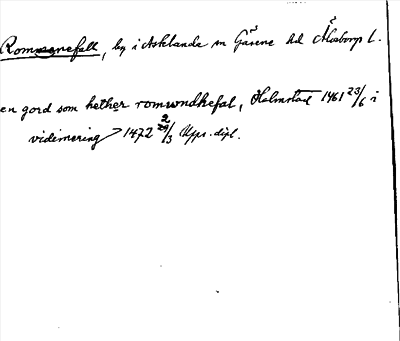 Rommenefall, by i Asklanda sn Gäsene hd Älvsborgs l.
en gord som hether romundhefal, Halmstad 1461 23/6 i
vidimering 1472 22/3 Upps. dipl.